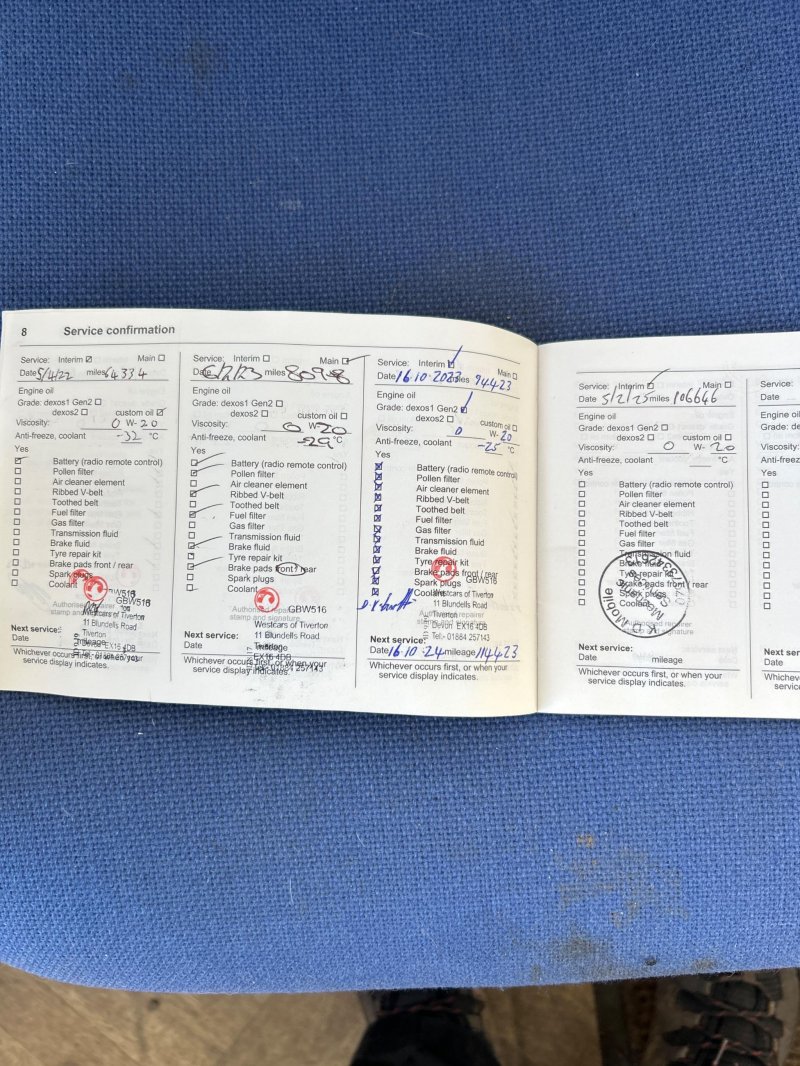 8 Service confirmation
Service: Interim ☑ Main ☐
Date 5/4/22 miles 64334
Engine oil
Grade: dexos1 Gen2 ☐
dexos2 ☐ custom oil ☑
Viscosity: 0 W- 20
Anti-freeze, coolant -32 °C
Yes
Battery (radio remote control)
Pollen filter
Air cleaner element
Ribbed V-belt
Toothed belt
Fuel filter
Gas filter
Transmission fluid
Brake fluid
Tyre repair kit
Brake pads front / rear
Spark plugs
Coolant
GBW516
Authorised repairer
stamp and signature
Westcars of Tiverton
11 Blundells Road
Tiverton
Devon EX16 4DB
Tel: 01884 257143
Next service:
Date mileage
Whichever occurs first, or when your
service display indicates.
Service: Interim ☐ Main ☑
Date 6/2/23 miles
Engine oil
Grade: dexos1 Gen2 ☐
dexos2 ☐ custom oil ☐
Viscosity: 0 W- 20
Anti-freeze, coolant -29 °C
Yes
Battery (radio remote control)
Pollen filter
Air cleaner element
Ribbed V-belt
Toothed belt
Fuel filter
Gas filter
Transmission fluid
Brake fluid
Tyre repair kit
Brake pads front / rear
Spark plugs
Coolant
GBW516
Authorised repairer
stamp and signature
Westcars of Tiverton
11 Blundells Road
Tiverton
EX16 4DB
Tel: 01884 257143
Next service:
Date mileage
Whichever occurs first, or when your
service display indicates.
Service: Interim ☑ Main ☐
Date 16.10.2023 miles 94423
Engine oil
Grade: dexos1 Gen2 ☑
dexos2 ☐ custom oil ☐
Viscosity: 0 W- 20
Anti-freeze, coolant -25 °C
Yes
Battery (radio remote control)
Pollen filter
Air cleaner element
Ribbed V-belt
Toothed belt
Fuel filter
Gas filter
Transmission fluid
Brake fluid
Tyre repair kit
Brake pads front / rear
Spark plugs
Coolant
GBW516
Authorised repairer
stamp and signature
Westcars of Tiverton
11 Blundells Road
Tiverton
Devon EX16 4DB
Tel: 01884 257143
Next service:
Date 16.10.24 mileage 114423
Whichever occurs first, or when your
service display indicates.
Service: Interim ☑ Main ☐
Date 5/2/25 miles 106646
Engine oil
Grade: dexos1 Gen2 ☐
dexos2 ☐ custom oil ☐
Viscosity: 0 W- 20
Anti-freeze, coolant °C
Yes
Battery (radio remote control)
Pollen filter
Air cleaner element
Ribbed V-belt
Toothed belt
Fuel filter
Gas filter
Transmission fluid
Brake fluid
Tyre repair kit
Brake pads front / rear
Spark plugs
Coolant
Mobile
Authorised repairer
stamp and signature
Next service:
Date mileage
Whichever occurs first, or when your
service display indicates.
Service:
Date
Engine oil
Grade:
Viscosity:
Anti-freeze,
Yes
Next ser
Date
Whicheve
serv